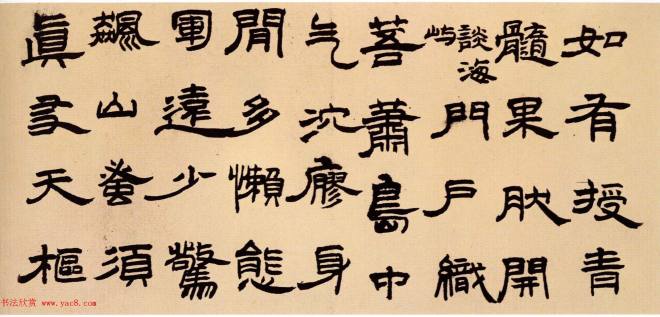 如有授青
髓果肰開
談海門戶織
屿
菩蕭島中
气沈廖身
閒多懶態
軍遠少驚
飆山蚩須
眞旻天樞
书法欣赏 www.yac8.com